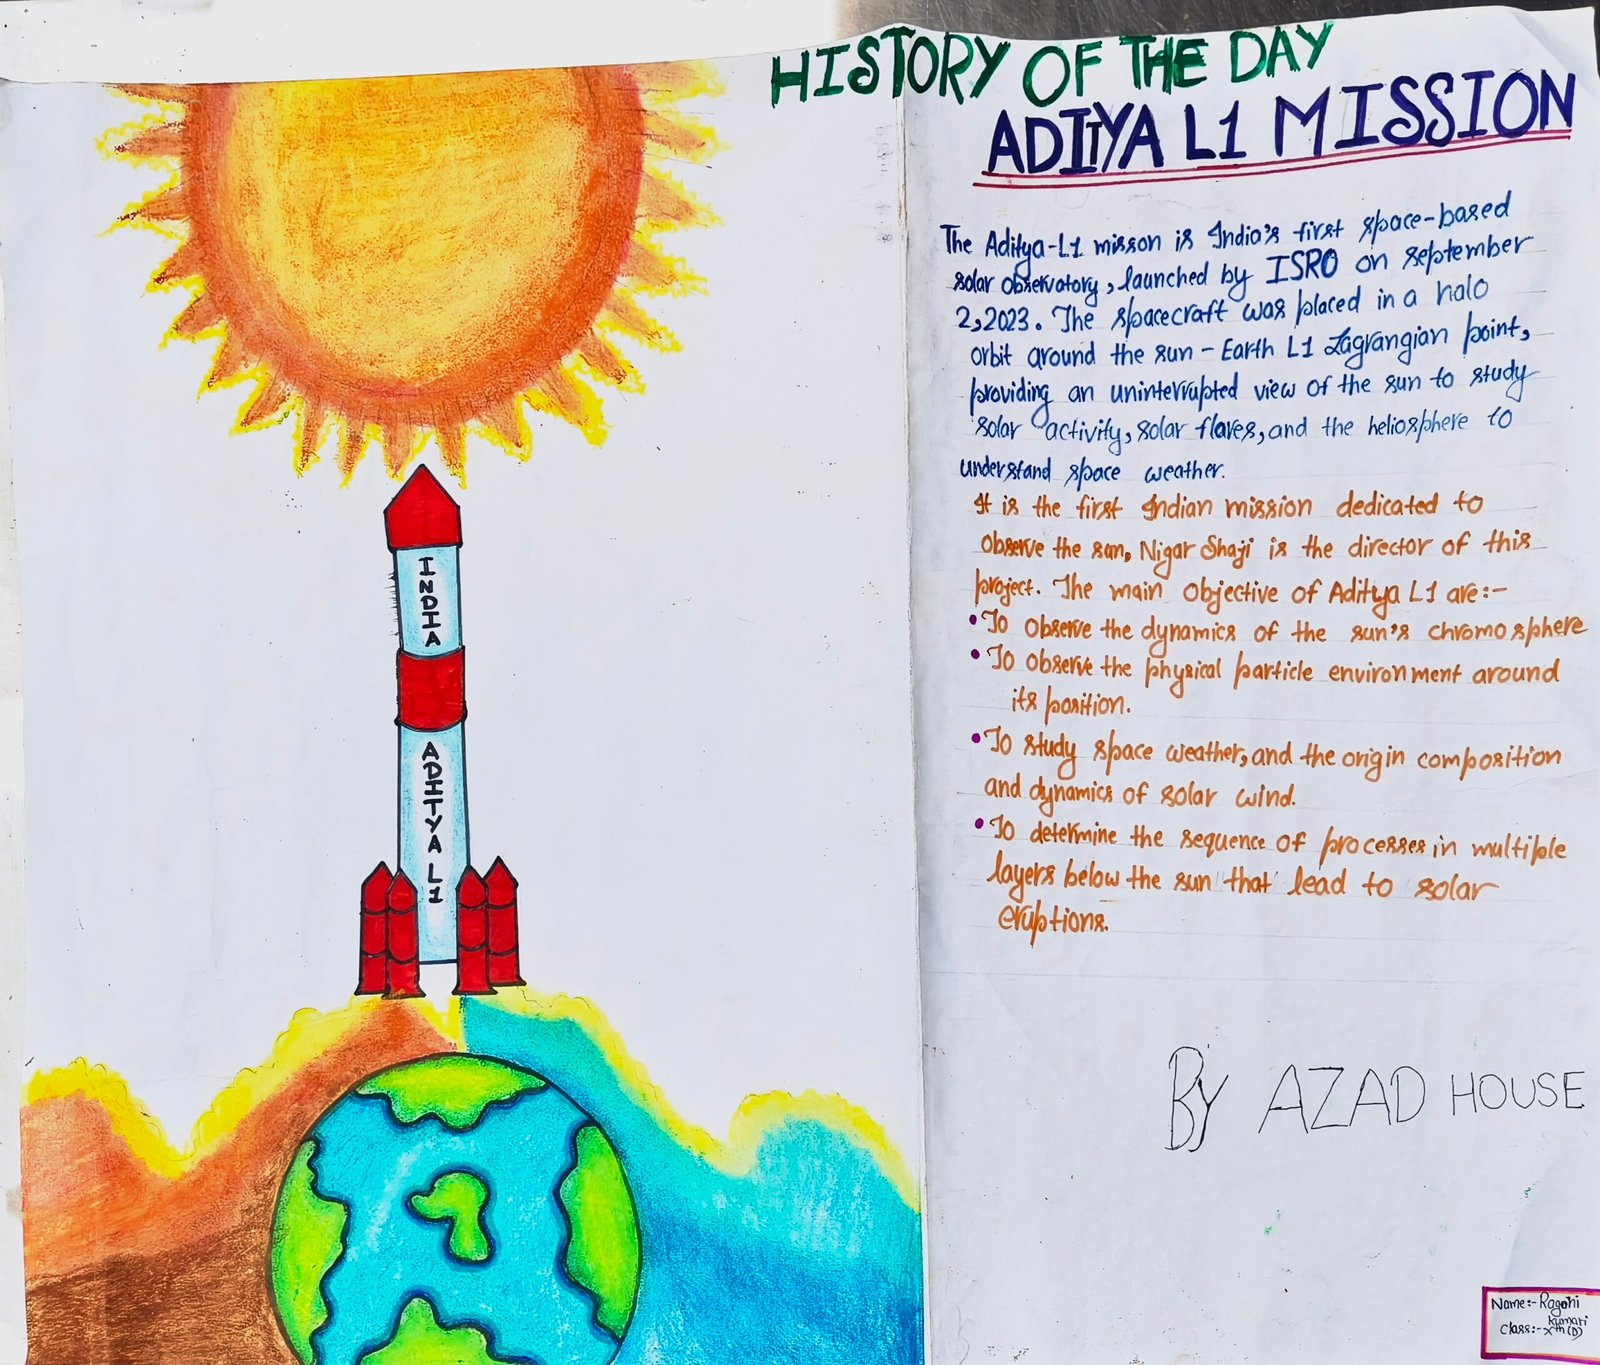 HISTORY OF THE DAY
ADITYA L1 MISSION
The Aditya-L1 misson is India's first space-based
solar observatory, launched by ISRO on september
2,2023. The spacecraft was placed in a halo
orbit around the sun - Earth L1 Lagrangian point,
providing an uninterrupted view of the sun to study
solar activity, solar flares, and the heliosphere to
understand space weather.
It is the first Indian mission dedicated to
observe the sun, Nigar Shaji is the director of this
project. The main objective of Aditya L1 are:-
• To observe the dynamics of the sun's chromosphere
• To observe the physical particle environment around
its position.
• To study space weather, and the origin composition
and dynamics of solar wind.
• To determine the sequence of processes in multiple
layers below the sun that lead to solar
eruptions.
BY AZAD HOUSE
Name:- Ragini
Kumari
Class:- Xth (D)
INDIA
ADITYA L1